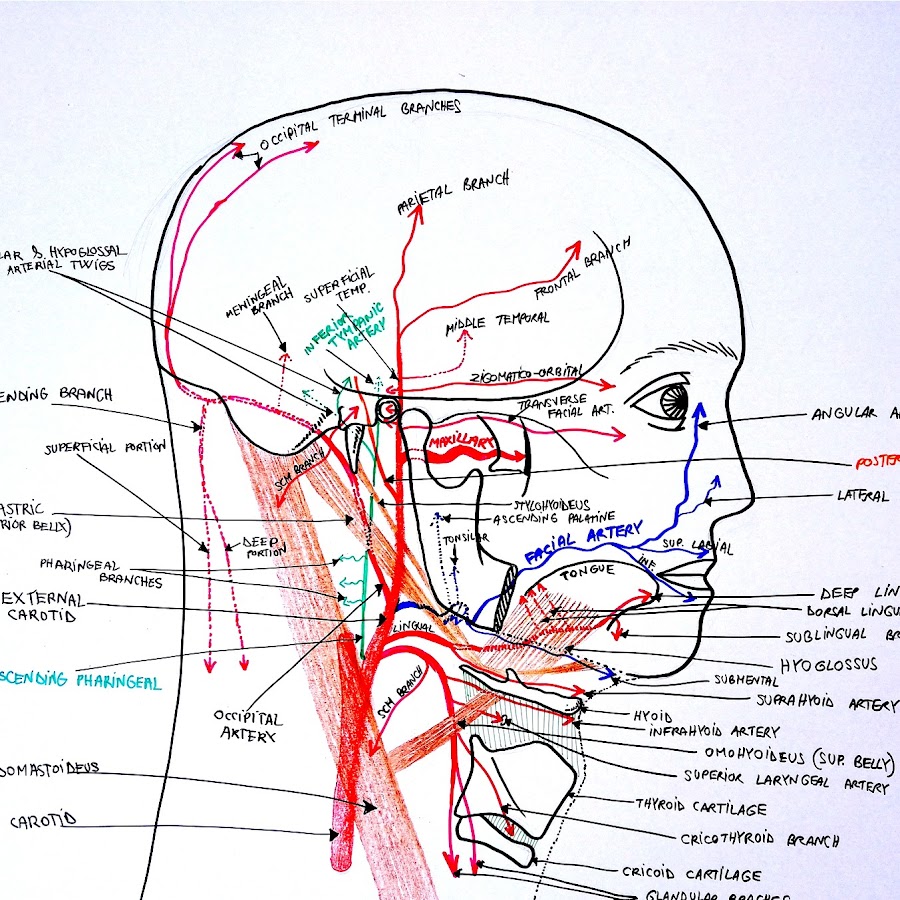 OCCIPITAL TERMINAL BRANCHES
PARIETAL BRANCH
LAR & HYPOGLOSSAL
ARTERIAL TWIGS
MENINGEAL
BRANCH
SUPERFICIAL
TEMP.
INFERIOR
TYMPANIC
ARTERY
FRONTAL BRANCH
MIDDLE TEMPORAL
ZIGOMATICO-ORBITAL
TRANSVERSE
FACIAL ART.
ENDING BRANCH
ANGULAR A
SUPERFICIAL PORTION
MAXILLARY
POSTER
SCM BRANCH
LATERAL
ASTRIC
RIOR BELLY)
STYLOHYOIDEUS
ASCENDING PALATINE
TONSILAR
FACIAL ARTERY
SUP. LABIAL
INF.
DEEP
PORTION
PHARINGEAL
BRANCHES
TONGUE
EXTERNAL
CAROTID
DEEP LIN
DORSAL LINGU
LINGUAL
SUBLINGUAL BR
HYOGLOSSUS
SCENDING PHARINGEAL
SUBMENTAL
SCM BRANCH
SUPRAHYOID ARTERY
OCCIPITAL
ARTERY
HYOID
INFRAHYOID ARTERY
OMOHYOIDEUS (SUP. BELLY)
SUPERIOR LARYNGEAL ARTERY
DOMASTOIDEUS
THYROID CARTILAGE
CAROTID
CRICOTHYROID BRANCH
CRICOID CARTILAGE
GLANDULAR BRANCHES